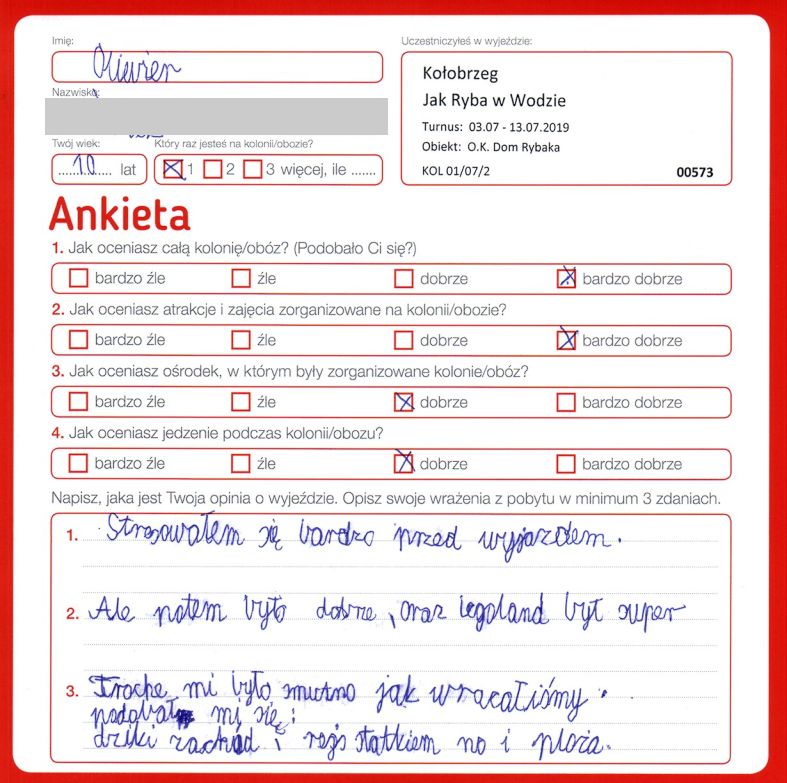 Imię:
Oliwier
Nazwisko:
Twój wiek:
10 lat
Który raz jesteś na kolonii/obozie?
1 2 3 więcej, ile .......
Uczestniczyłeś w wyjeździe:
Kołobrzeg
Jak Ryba w Wodzie
Turnus: 03.07 - 13.07.2019
Obiekt: O.K. Dom Rybaka
KOL 01/07/2 00573
Ankieta
1. Jak oceniasz całą kolonię/obóz? (Podobało Ci się?)
bardzo źle źle dobrze bardzo dobrze
2. Jak oceniasz atrakcje i zajęcia zorganizowane na kolonii/obozie?
bardzo źle źle dobrze bardzo dobrze
3. Jak oceniasz ośrodek, w którym były zorganizowane kolonie/obóz?
bardzo źle źle dobrze bardzo dobrze
4. Jak oceniasz jedzenie podczas kolonii/obozu?
bardzo źle źle dobrze bardzo dobrze
Napisz, jaka jest Twoja opinia o wyjeździe. Opisz swoje wrażenia z pobytu w minimum 3 zdaniach.
1. Stresowałem się bardzo przed wyjazdem.
2. Ale potem było dobrze, oraz legoland był super
3. Troche mi było smutno jak wracaliśmy.
podobał mi się:
dziki zachód i rejs statkiem no i plaża.